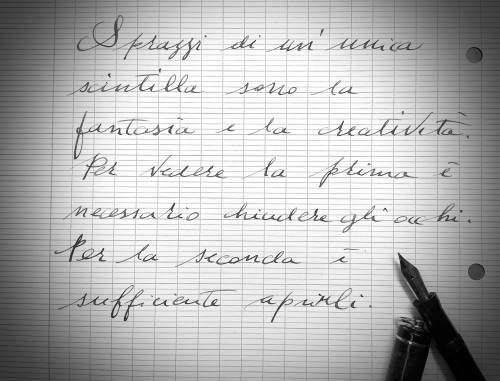 Sprazzi di un' unica
scintilla sono la
fantasia e la creatività.
Per vedere la prima è
necessario chiudere gli occhi.
Per la seconda è
sufficiente aprirli.